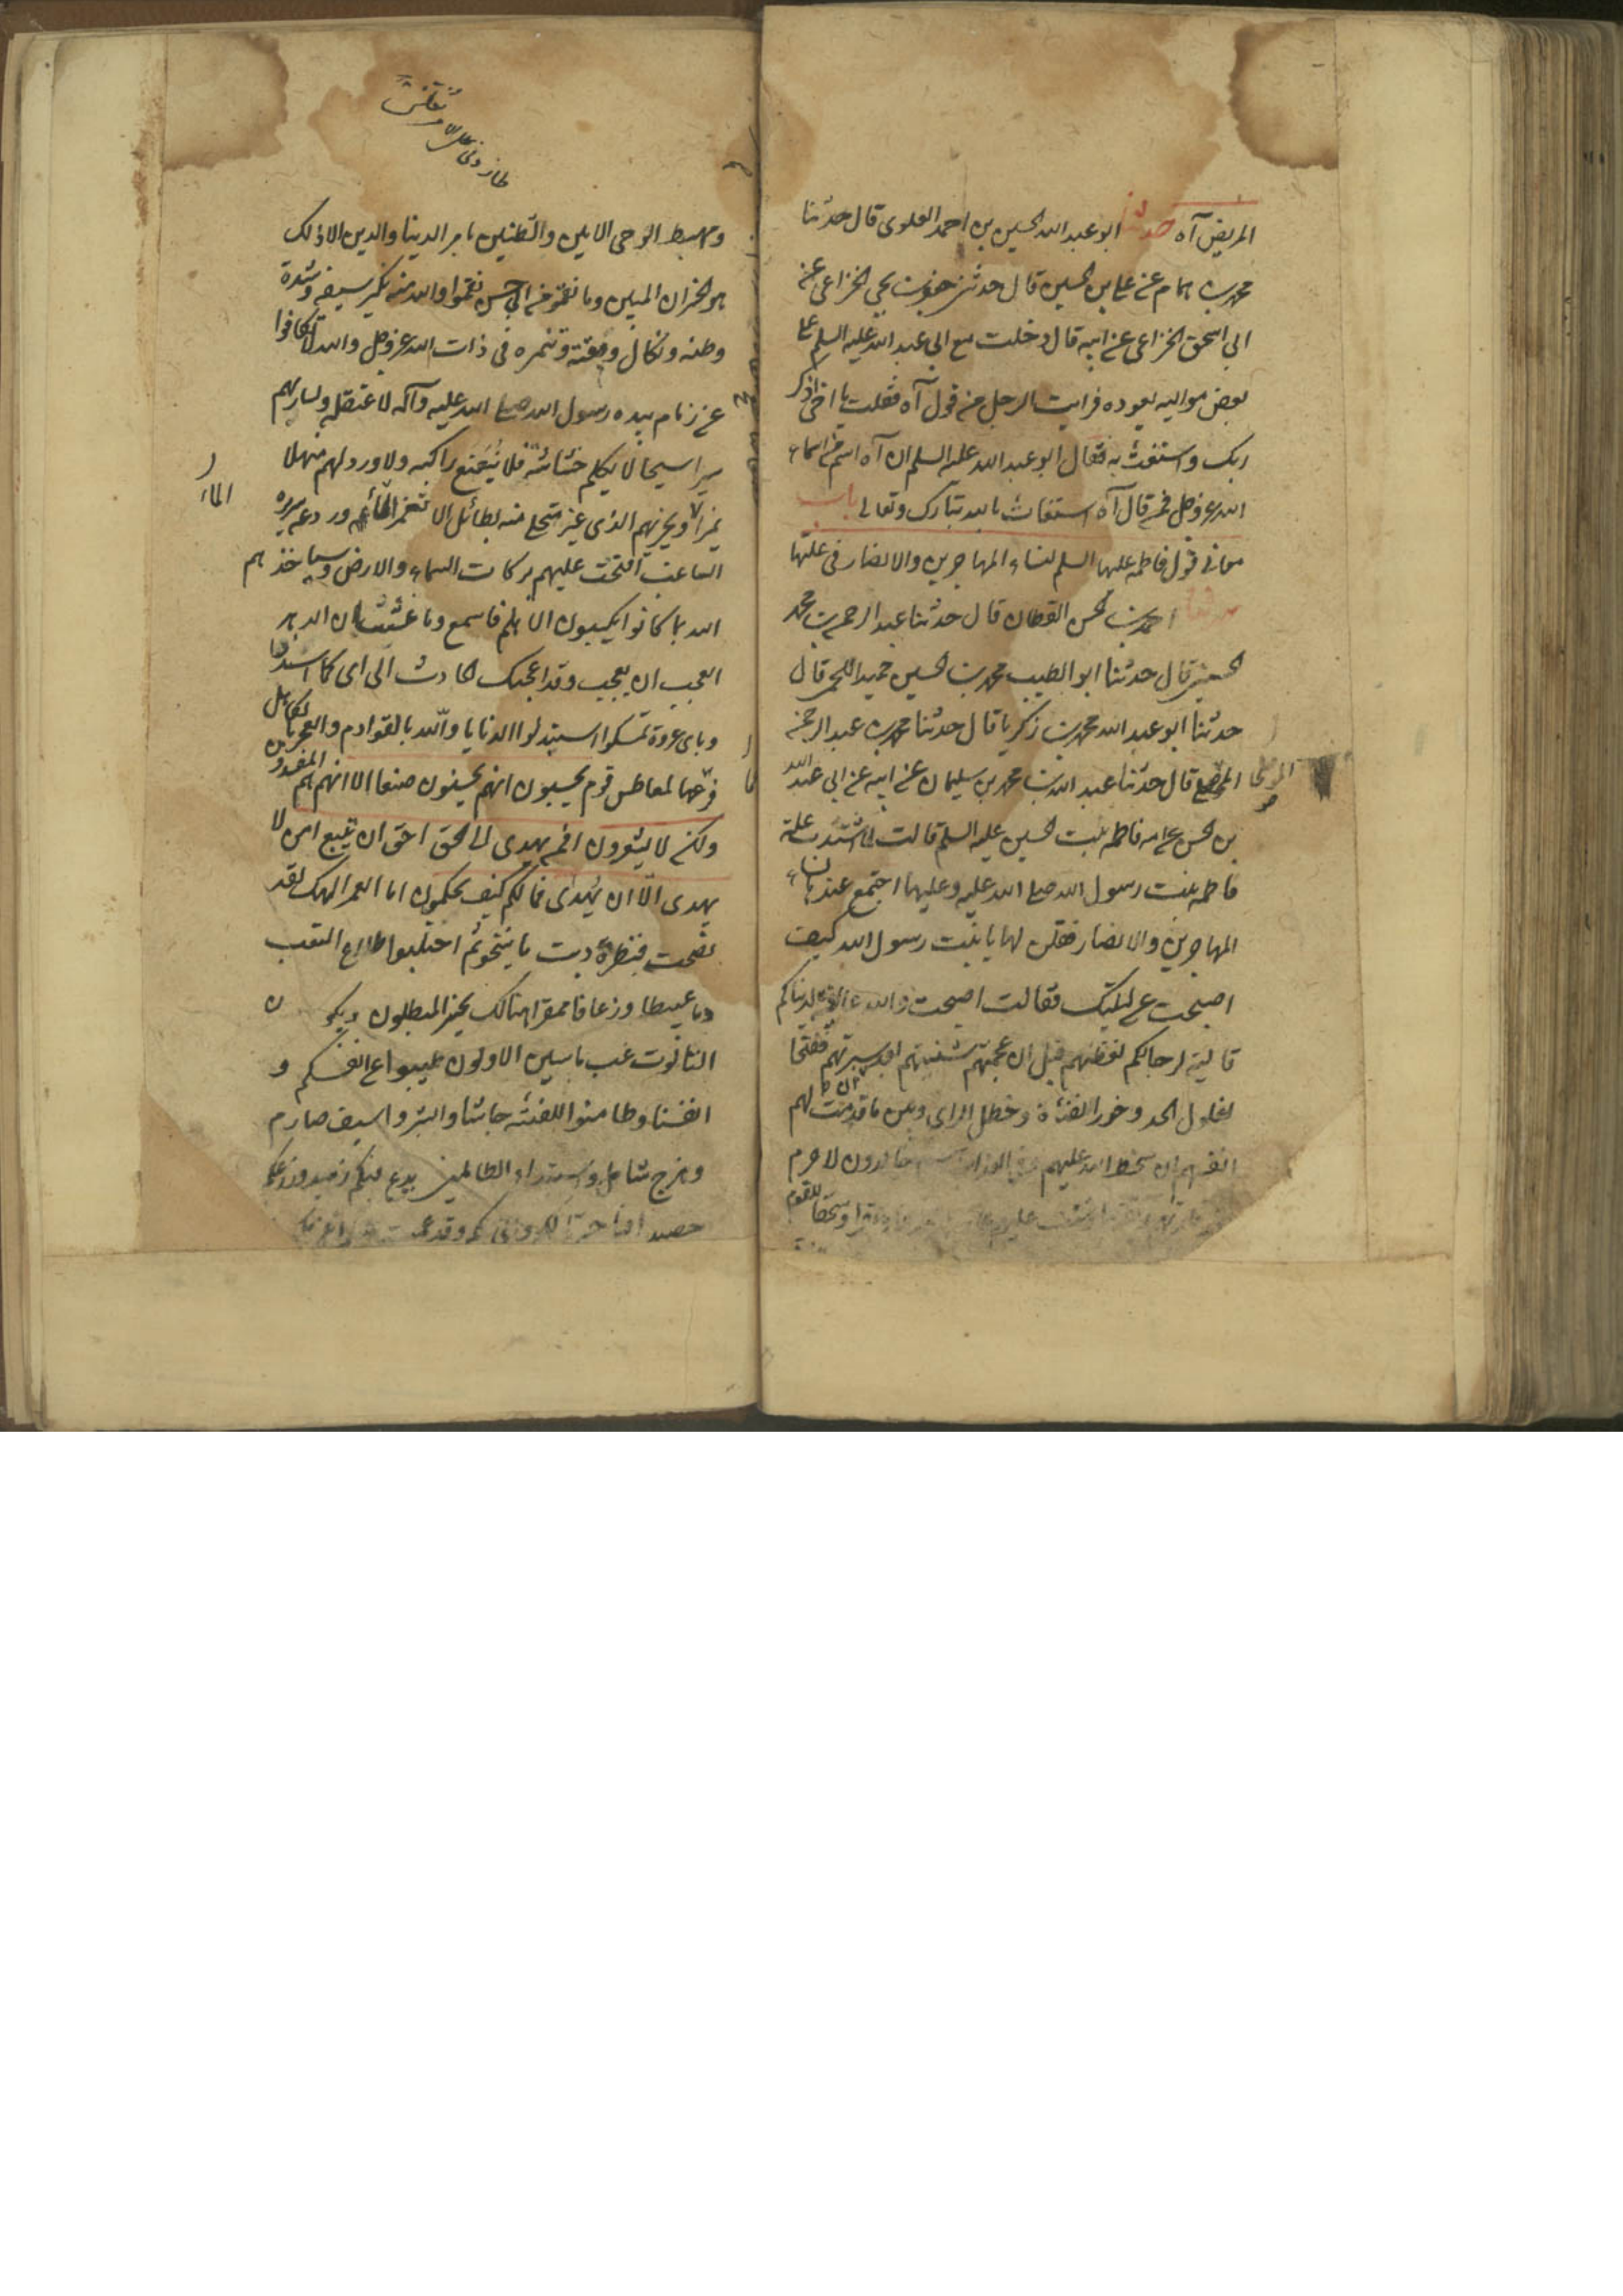 المريض آه حدثنا ابو عبد الله الحسين بن احمد العلوى قال حدثنا
محمد بن همام عن على بن الحسين قال حدثنى جعفر بن يحيى الخزاعى عن
ابى اسحق الخزاعى عن ابيه قال دخلت مع ابى عبد الله عليه السلم على
بعض مواليه يعوده فرايت الرجل من قول آه فقلت يا اخى اذكر
ربك واستغث به فقال ابو عبد الله عليه السلم ان آه اسم من اسماء
الله عز وجل فمن قال آه استغاث بالله تبارك وتعالى باب
معانى قول فاطمه عليها السلم لنساء المهاجرين والانصار فى علتها
حدثنا احمد بن الحسن القطان قال حدثنا عبد الرحمن بن محمد
الحسينى قال حدثنا ابو الطيب محمد بن الحسين حميد اللخمى قال
حدثنا ابو عبد الله محمد بن زكريا قال حدثنا محمد بن عبد الرحمن
المهلبى قال حدثنا عبد الله بن محمد بن سليمان عن ابيه عن ابى عبد الله
بن الحسن عن امه فاطمه بنت الحسين عليه السلم قالت لما اشتدت علة
فاطمه بنت رسول الله صلى الله عليه وعليها اجتمع عندها نساء
المهاجرين والانصار فقلن لها يا بنت رسول الله كيف
اصبحت عن ليلتك فقالت اصبحت والله عايفة لدنياكم
قالية لرجالكم لفظتهم قبل ان عجمتهم شنئتهم بعد سبرتهم فقبحا
لفلول الحد وخور القناة وخطل الراى وبئس ما قدمت لهم
انفسهم ان سخط الله عليهم وفى العذاب هم خالدون لا جرم
وسحقا للقوم
ومهبط الوحى الامين والطبين بامر الدنيا والدين الا ذلك
هو الخسران المبين وما نقموا من ابى حسن نقموا والله منه نكير سيفه وشدة
وطئه ونكال وقعته وتنمره فى ذات الله عز وجل والله لو تكافوا
عن زمام نبذه رسول الله صلى الله عليه وآله لاعتقله ولسار بهم
سيرا سجحا لا يكلم خشاشه فلا يتعتع راكبه ولاوردهم منهلا
الماء
الساغب لفتحت عليهم بركات السماء والارض وسياخذهم
الله بما كانوا يكسبون الا هلم فاسمع وما عشت اراك الدهر
العجب ان تعجب وقد اعجبك الحادث الى اى
وباى عروة تمسكوا استبدلوا الذنابا والله بالقوادم والعجز بالكاهل
فرغما لمعاطس قوم يحسبون انهم يحسنون صنعا الا انهم هم المفسدون
ولكن لا يشعرون افمن يهدى الى الحق احق ان يتبع امن لا
يهدى الا ان يهدى فما لكم كيف تحكمون اما لعمر الهك لقد
لقحت فنظرة ريث ما ينتجوا ثم احتلبوا طلاع القعب
دما عبيطا وزعافا ممقرا هنالك يخسر المبطلون
التالون غب ما سن الاولون طيبوا عن انفسكم و
انفسنا وطامنوا للفتنة جاشا وابشروا بسيف صارم
وهرج شامل واستبداد الظالمين يدع فيئكم زهيدا وزرعكم